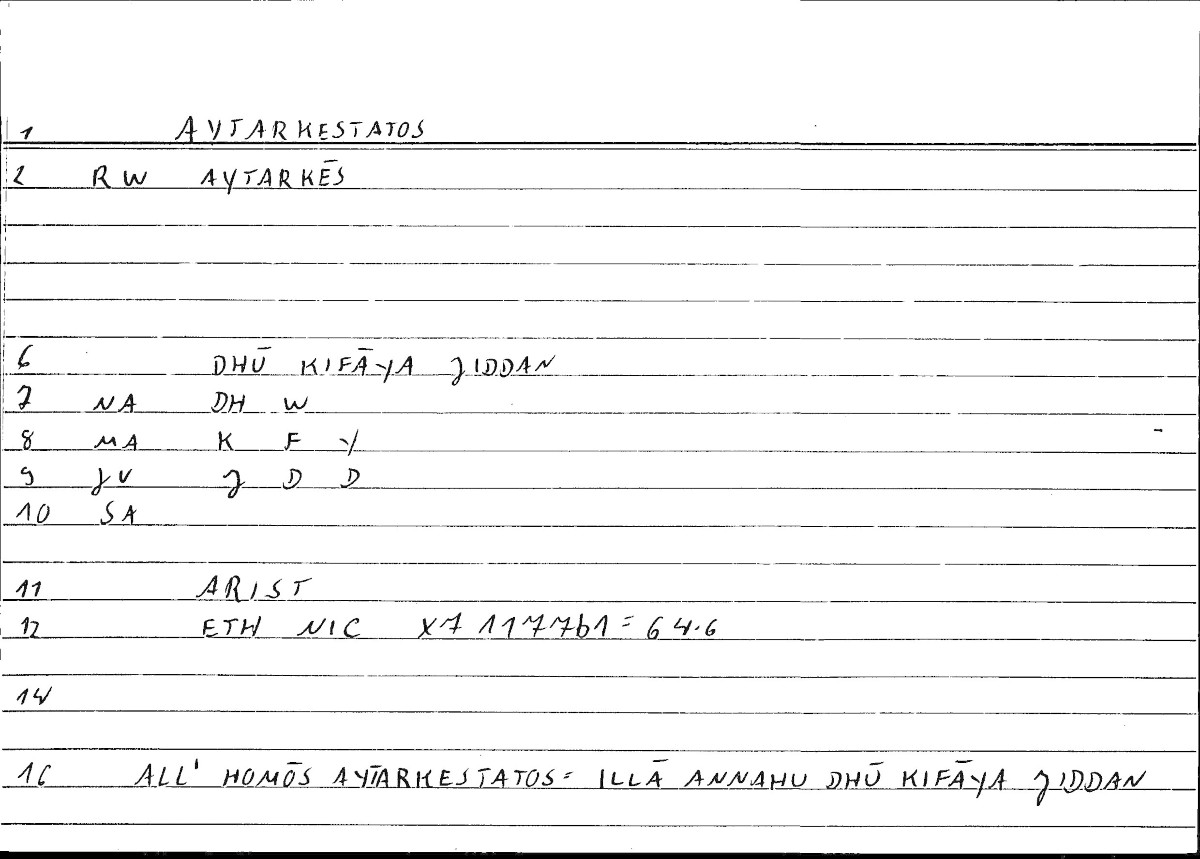 1 AYTARKESTATOS
2 RW AYTARKĒS
6 DHŪ KIFĀYA JIDDAN
7 NA DH W
8 MA K F Y
9 JV J D D
10 SA
11 ARIST
12 ETH NIC X7 1177b1 = 64.6
14
16 ALL' HOMŌS AYTARKESTATOS = ILLĀ ANNAHU DHŪ KIFĀYA JIDDAN